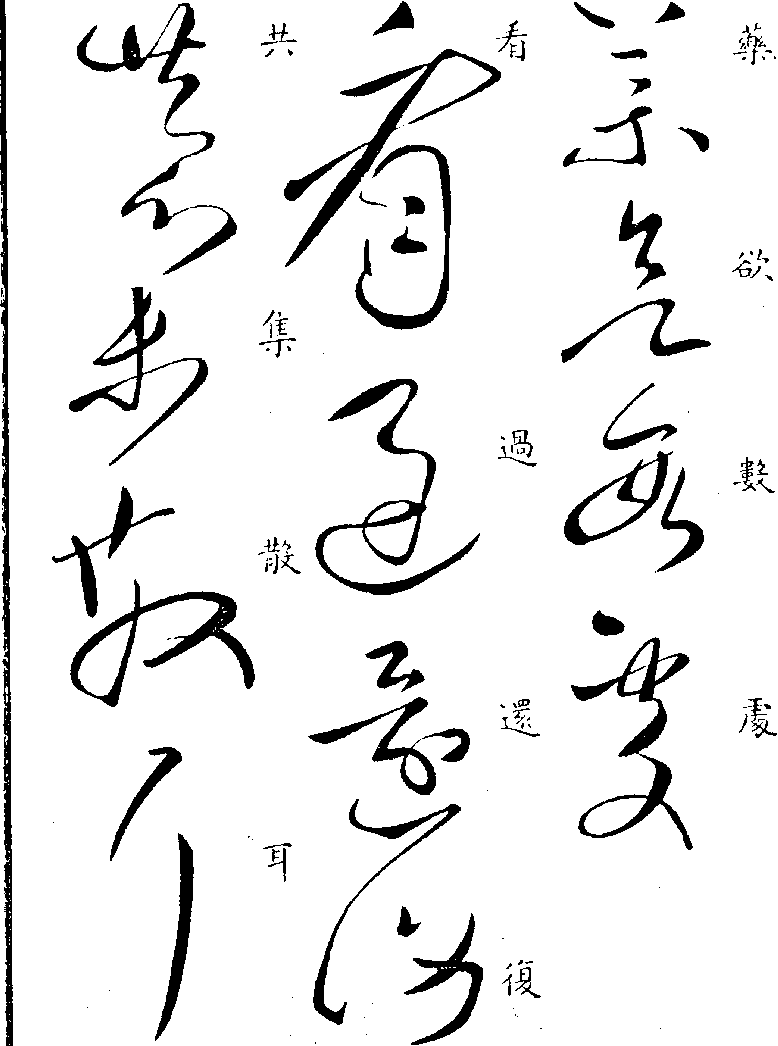 藥欲數處
看過還復
共集散耳